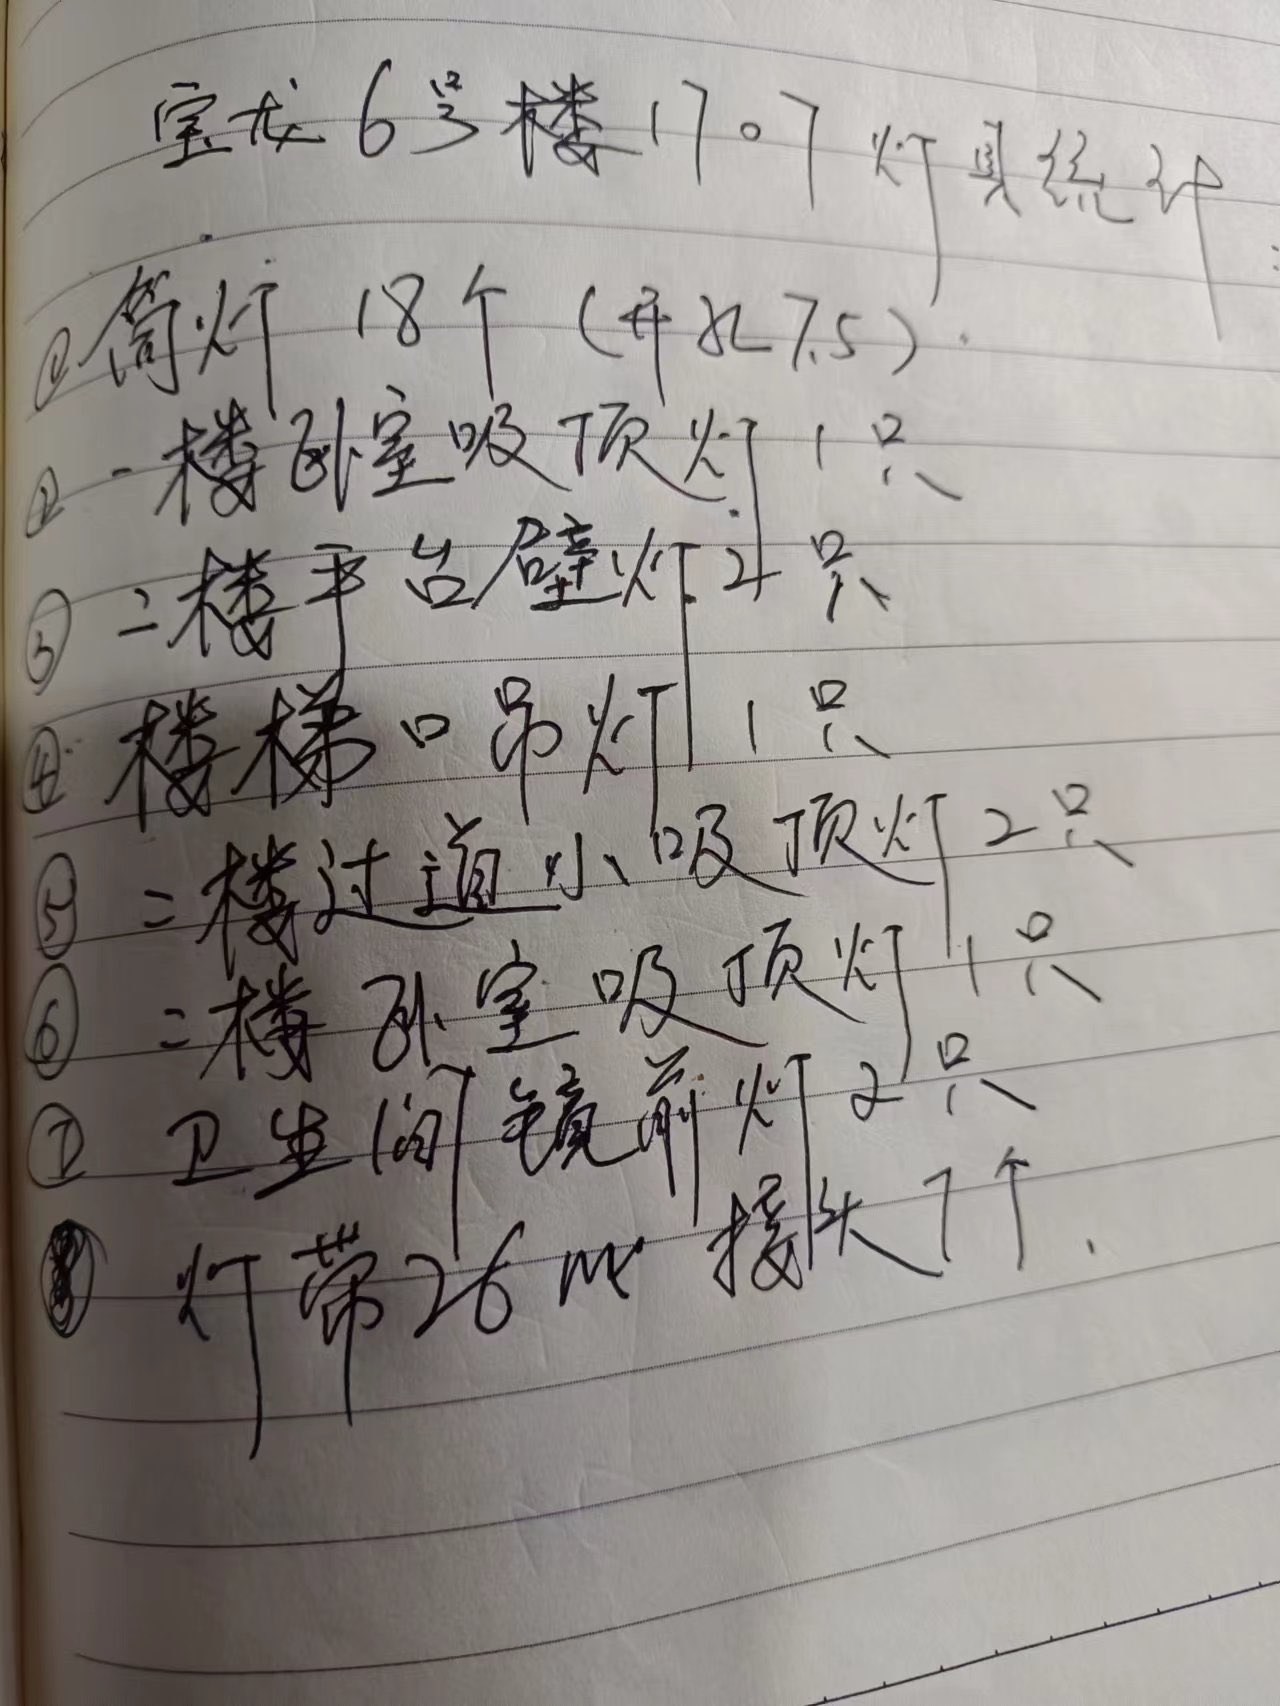 宝龙6号楼1707灯具统计:
①筒灯 18个(开孔7.5).
②一楼卧室吸顶灯1只
③二楼平台壁灯2只
④楼梯口吊灯1只
⑤二楼过道小吸顶灯2只
⑥二楼卧室吸顶灯1只
⑦卫生间镜前灯2只
⑧灯带26m 接头7个.